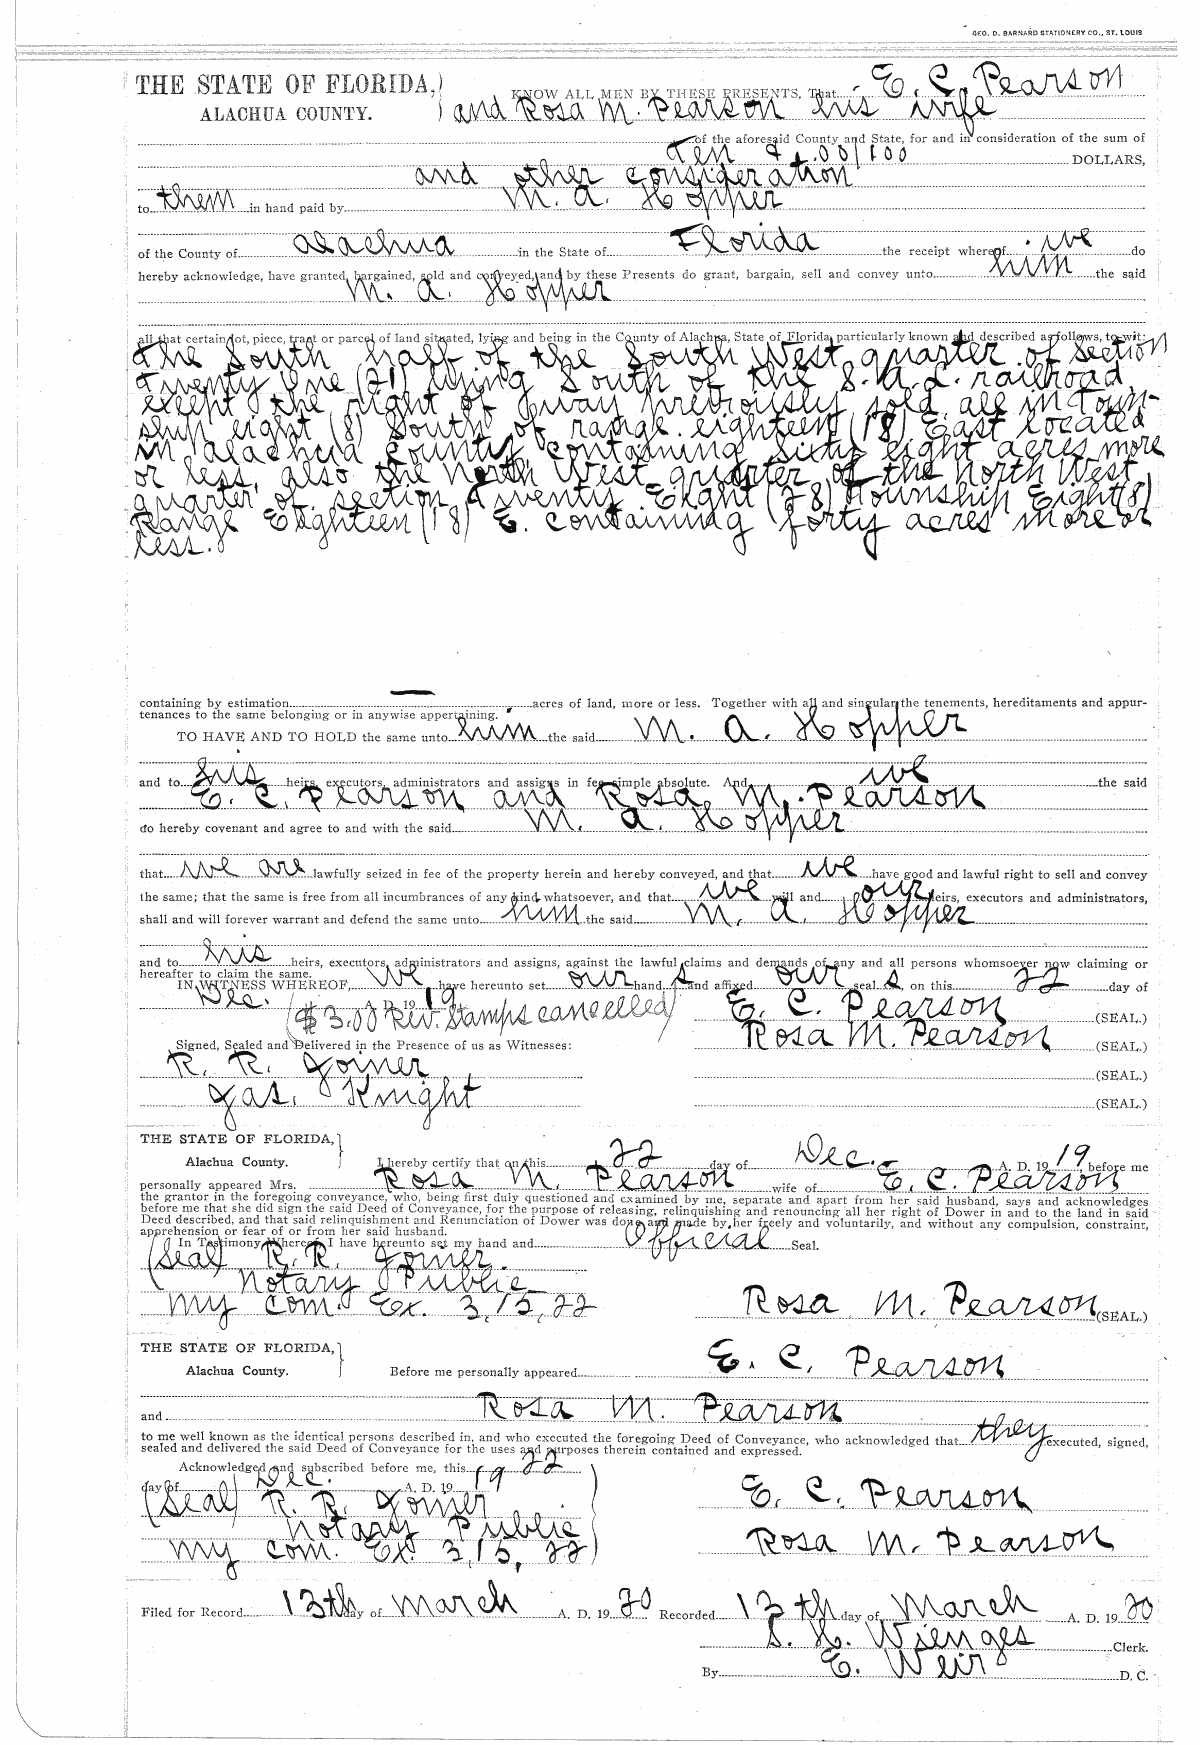 GEO. D. BARNARD STATIONERY CO., ST. LOUIS
THE STATE OF FLORIDA,) KNOW ALL MEN BY THESE PRESENTS, That E. C. Pearson
ALACHUA COUNTY. ) and Rosa M. Pearson his wife
of the aforesaid County and State, for and in consideration of the sum of
Ten & .00/100 DOLLARS,
and other consideration
to them in hand paid by M. A. Hopper
of the County of Alachua in the State of Florida the receipt whereof we do
hereby acknowledge, have granted, bargained, sold and conveyed, and by these Presents do grant, bargain, sell and convey unto him the said
M. A. Hopper
all that certain lot, piece, tract or parcel of land situated, lying and being in the County of Alachua, State of Florida, particularly known and described as follows, to-wit:
The South half of the South West quarter of Section
Twenty One (21) lying South of the S. A. L. railroad,
except the right of way previously sold, all in Town-
ship eight (8) South of range eighteen (18) East located
in Alachua County containing sixty eight acres more
or less, also the North West quarter of the North West
quarter of section Twenty Eight (28) Township Eight (8)
Range Eighteen (18) E. containing forty acres more or
less.
containing by estimation — acres of land, more or less. Together with all and singular the tenements, hereditaments and appur-
tenances to the same belonging or in anywise appertaining.
TO HAVE AND TO HOLD the same unto him the said M. A. Hopper
and to his heirs, executors, administrators and assigns in fee simple absolute. And we the said
E. C. Pearson and Rosa M. Pearson
do hereby covenant and agree to and with the said M. A. Hopper
that we are lawfully seized in fee of the property herein and hereby conveyed, and that we have good and lawful right to sell and convey
the same; that the same is free from all incumbrances of any kind whatsoever, and that we will and our heirs, executors and administrators,
shall and will forever warrant and defend the same unto him the said M. A. Hopper
and to his heirs, executors, administrators and assigns, against the lawful claims and demands of any and all persons whomsoever now claiming or
hereafter to claim the same.
IN WITNESS WHEREOF, We have hereunto set our hand s and affixed our seal s, on this 22 day of
Dec. A. D. 19 19 E. C. Pearson (SEAL.)
($3.00 Rev. Stamps cancelled) Rosa M. Pearson (SEAL.)
Signed, Sealed and Delivered in the Presence of us as Witnesses:
R. R. Joiner (SEAL.)
Jas. Knight (SEAL.)
THE STATE OF FLORIDA,}
Alachua County. I hereby certify that on this 22 day of Dec. A. D. 19 19, before me
personally appeared Mrs. Rosa M. Pearson wife of E. C. Pearson
the grantor in the foregoing conveyance, who, being first duly questioned and examined by me, separate and apart from her said husband, says and acknowledges
before me that she did sign the said Deed of Conveyance, for the purpose of releasing, relinquishing and renouncing all her right of Dower in and to the land in said
Deed described, and that said relinquishment and Renunciation of Dower was done and made by her freely and voluntarily, and without any compulsion, constraint,
apprehension or fear of or from her said husband.
In Testimony Whereof I have hereunto set my hand and Official Seal.
(Seal) R. R. Joiner.
Notary Public
My Com. Ex. 3,15,22 Rosa M. Pearson (SEAL.)
THE STATE OF FLORIDA,}
Alachua County. Before me personally appeared E. C. Pearson
and Rosa M. Pearson
to me well known as the identical persons described in, and who executed the foregoing Deed of Conveyance, who acknowledged that they executed, signed,
sealed and delivered the said Deed of Conveyance for the uses and purposes therein contained and expressed.
Acknowledged and subscribed before me, this 22
day of Dec. A. D. 19 19
(Seal) R. R. Joiner E. C. Pearson
Notary Public
My Com. Ex. 3,15,22 Rosa M. Pearson
Filed for Record 13th day of March A. D. 19 20 Recorded 13th day of March A. D. 19 20
S. H. Wienges Clerk.
By E. Weir D. C.